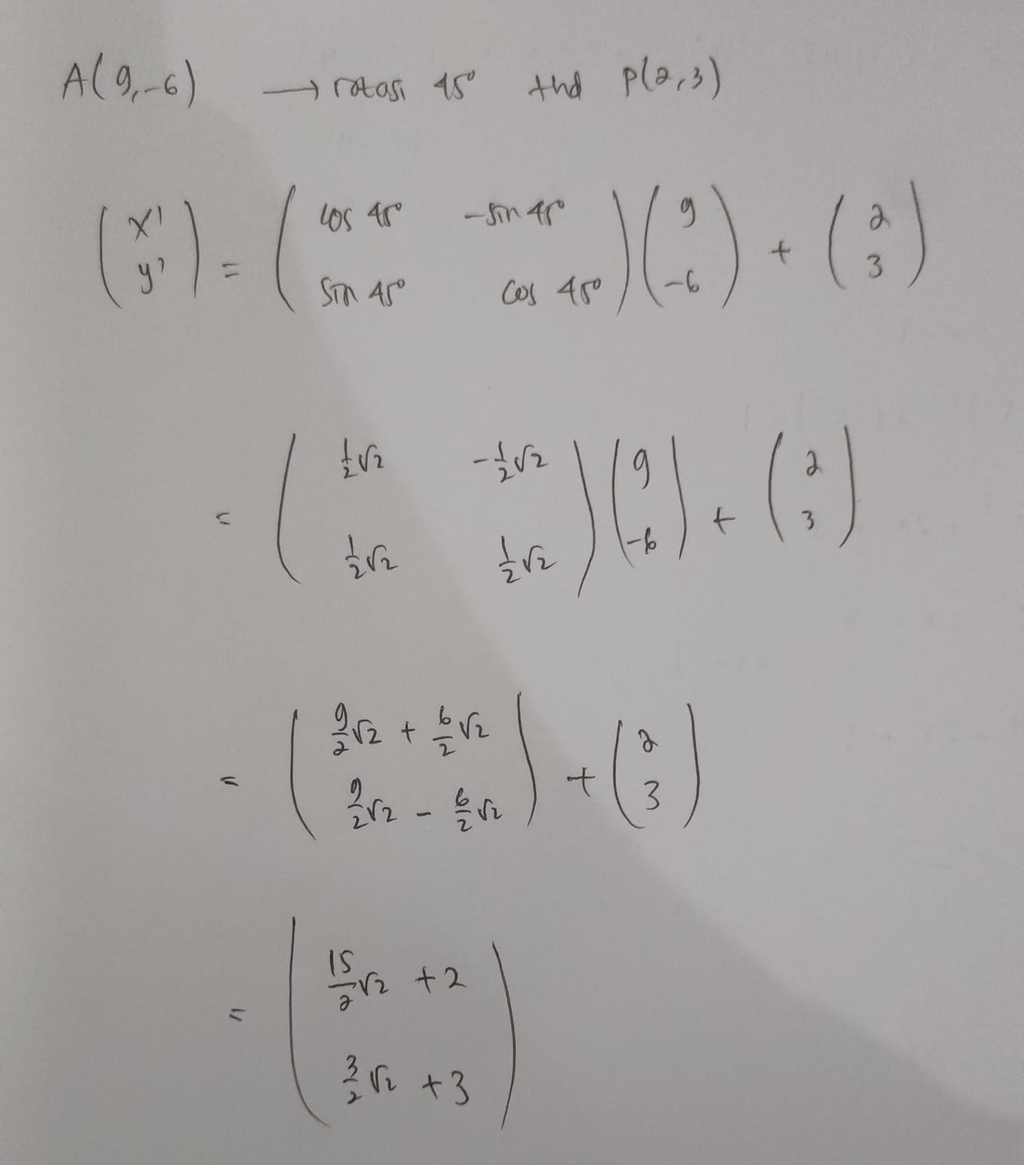 A(9,-6) → rotasi 45° thd P(2,3)
(x' y') = (cos 45° -sin 45° sin 45° cos 45°)(9 -6) + (2 3)
= (1/2√2 -1/2√2 1/2√2 1/2√2)(9 -6) + (2 3)
= (9/2√2 + 6/2√2 9/2√2 - 6/2√2) + (2 3)
= (15/2√2 + 2 3/2√2 + 3)